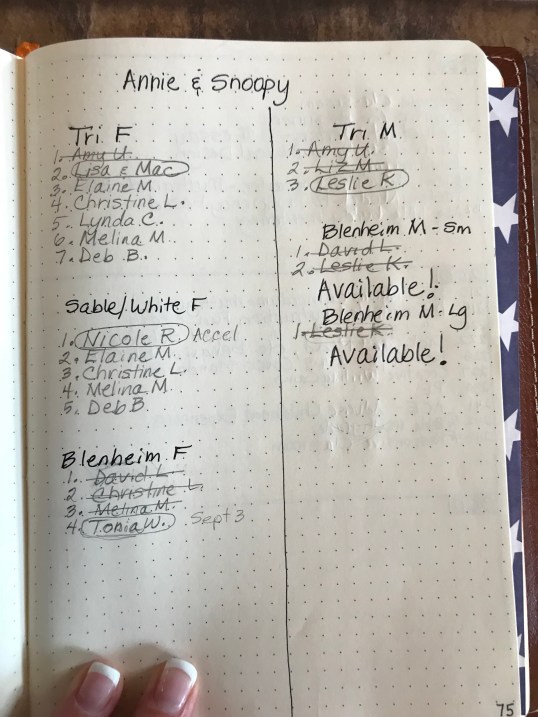 Annie & Snoopy
Tri F
1. Amy U.
2. Lisa & Mac
3. Elaine M.
4. Christine L.
5. Lynda C.
6. Melina M.
7. Deb B.
Sable/White F
1. Nicole R. Accel
2. Elaine M.
3. Christine L.
4. Melina M.
5. Deb B.
Blenheim F
1. David L.
2. Christine L.
3. Melina M.
4. Tonia W. Sept 3
Tri M
1. Amy U.
2. Liz M.
3. Leslie K
Blenheim M - Sm
1. David L.
2. Leslie K.
Available!
Blenheim M - Lg
1. Leslie K.
Available!
75